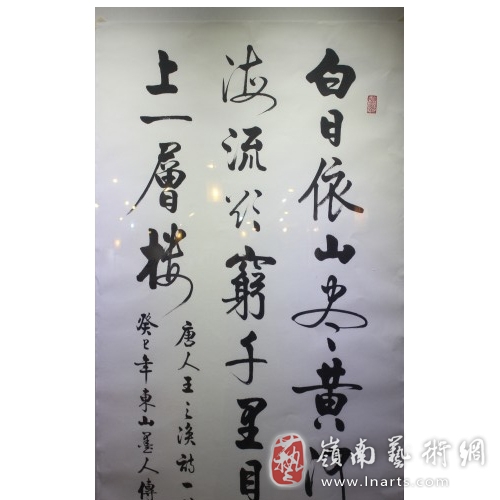 白日依山尽黄河
海流欲窮千里目
上一層楼
唐人王之渙詩一
癸巳年東山墨人傳
藝
嶺南藝術網
www.lnarts.com